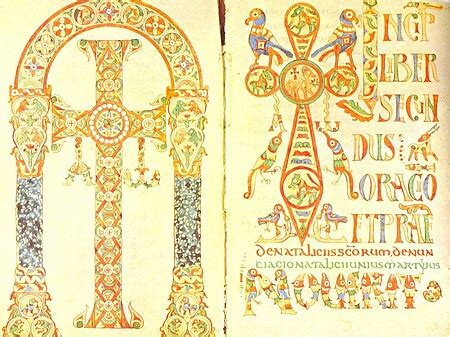 INCP
LIBER
SECUN
DUS
ORACO
ET PRAE
DENATALICIISSCORUM.DENUN
CIACIONATALICIIUNIUSMARTYRIS